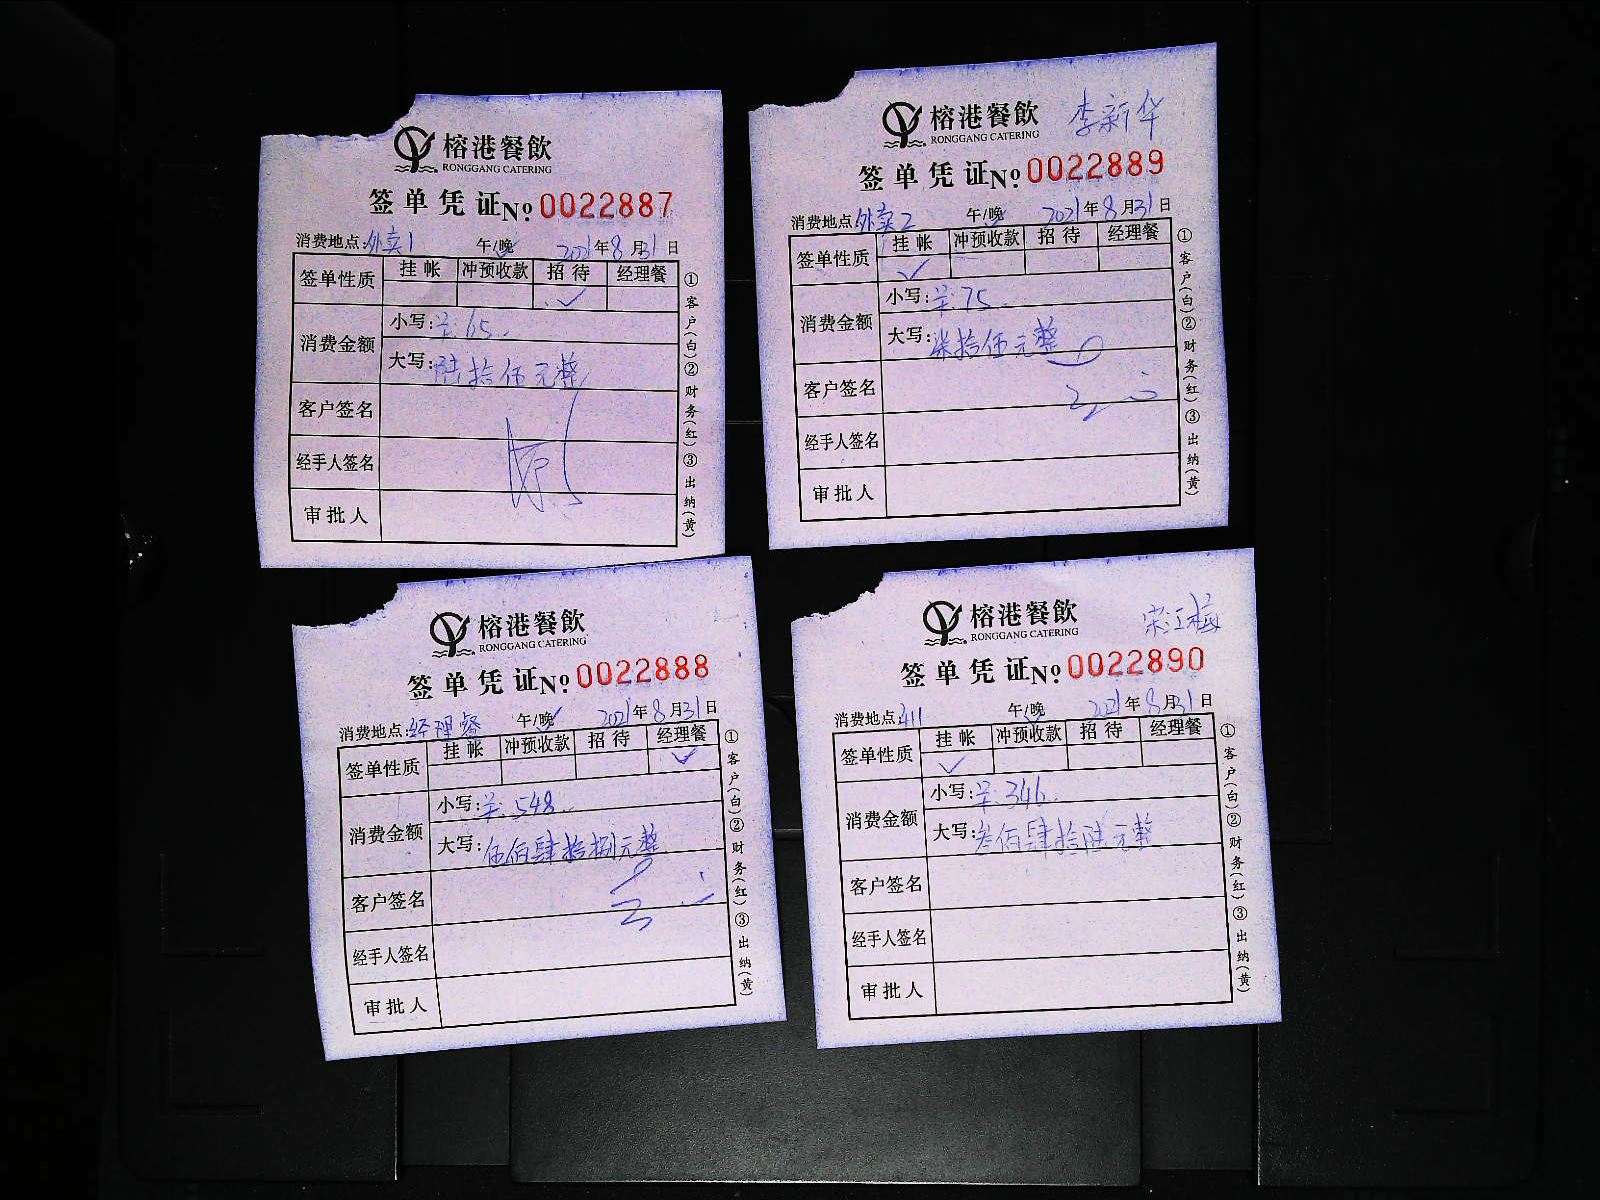 榕港餐飲
RONGGANG CATERING
签单凭证№ 0022887
消费地点:外卖1 午/晚 2021年8月31日
签单性质 挂帐 冲预收款 招待 经理餐
消费金额 小写:65
大写:陆拾伍元整
客户签名
经手人签名
审批人
①客户(白)②财务(红)③出纳(黄)
榕港餐飲 李新华
RONGGANG CATERING
签单凭证№ 0022889
消费地点:外卖2 午/晚 2021年8月31日
签单性质 挂帐 冲预收款 招待 经理餐
消费金额 小写:75
大写:柒拾伍元整
客户签名
经手人签名
审批人
①客户(白)②财务(红)③出纳(黄)
榕港餐飲
RONGGANG CATERING
签单凭证№ 0022888
消费地点:经理餐 午/晚 2021年8月31日
签单性质 挂帐 冲预收款 招待 经理餐
消费金额 小写:548
大写:伍佰肆拾捌元整
客户签名
经手人签名
审批人
①客户(白)②财务(红)③出纳(黄)
榕港餐飲 宋江梅
RONGGANG CATERING
签单凭证№ 0022890
消费地点:411 午/晚 2021年8月31日
签单性质 挂帐 冲预收款 招待 经理餐
消费金额 小写:346
大写:叁佰肆拾陆元整
客户签名
经手人签名
审批人
①客户(白)②财务(红)③出纳(黄)